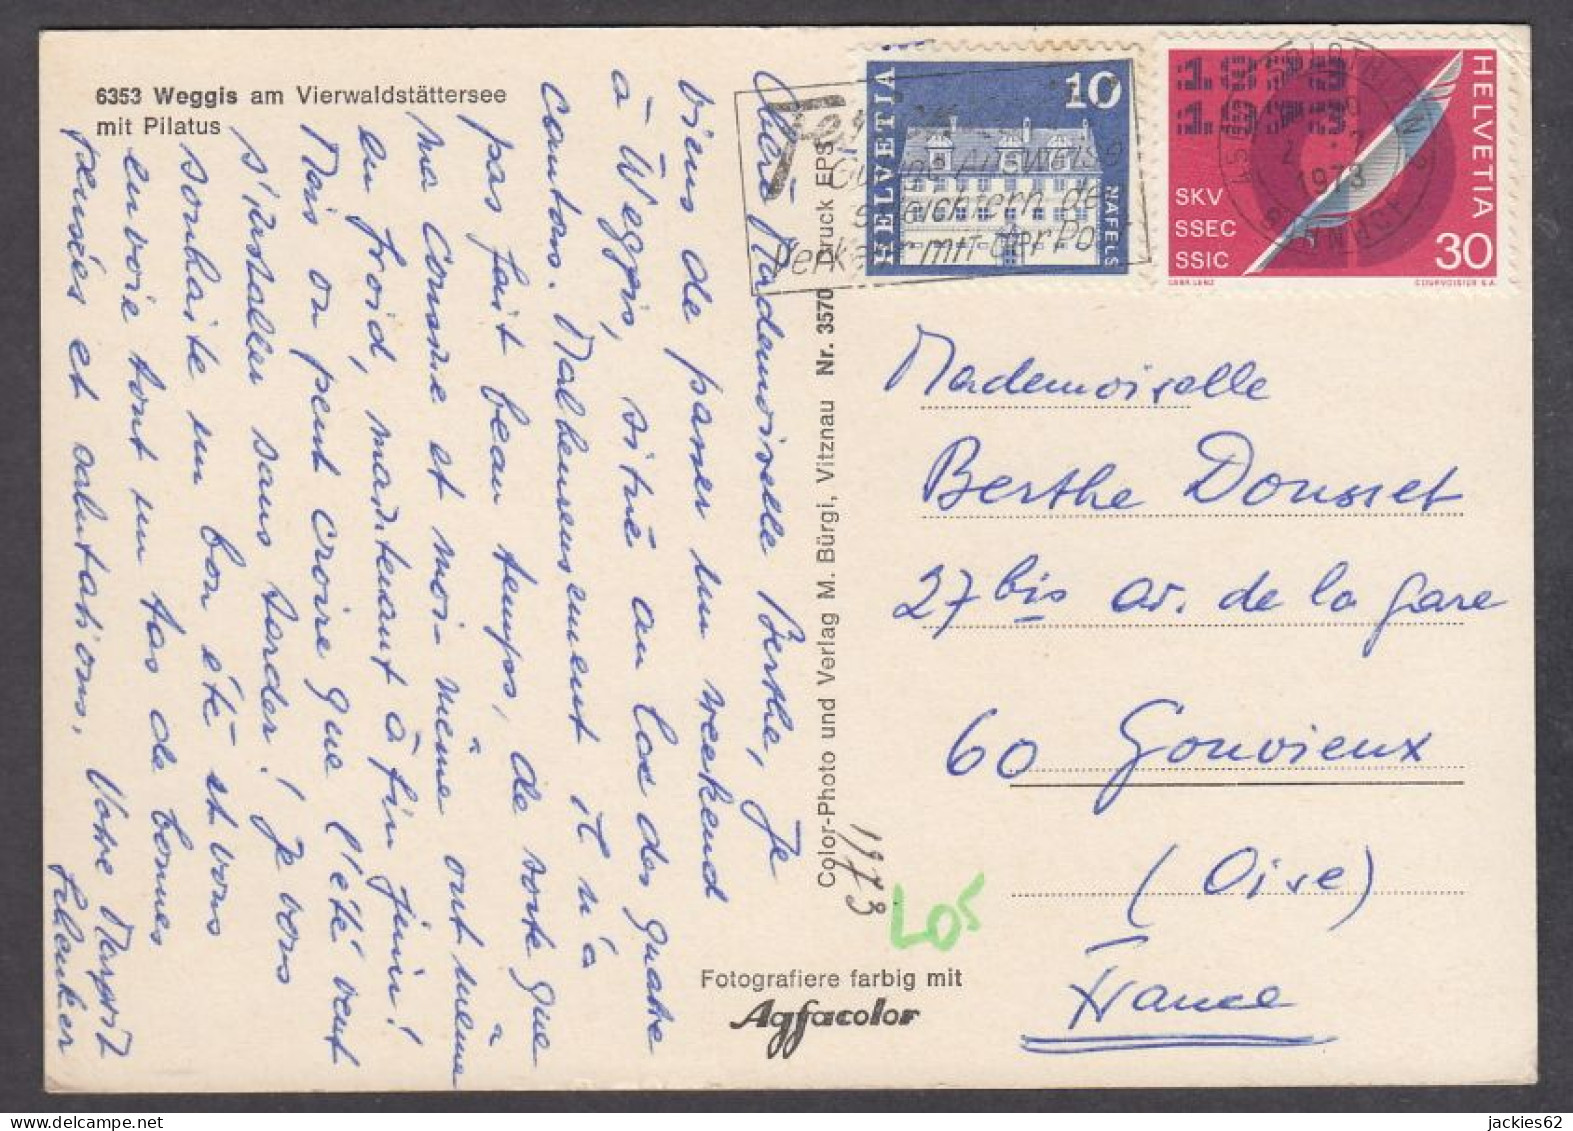 6353 Weggis am Vierwaldstättersee
mit Pilatus
Chère Mademoiselle Berthe, Je
viens de passer un weekend
à Weggis, situé au lac des quatre
Cantons. Malheureusement it n'a
pas fait beau temps, de sorte que
ma Cousine et moi-même ont même
eu froid, maintenant à fin juin!
Mais on peut croire que l'été vent
s'installer sans tarder! Je vous
souhaite un bon été et vous
envoie tout un tas de bonnes
pensées et salutations, Votre Margrit
Schenker
Color-Photo und Verlag M. Bürgi, Vitznau Nr. 3570 Druck EPS
1973
Los
Fotografiere farbig mit
Agfacolor
HELVETIA
10
NÄFELS
1873
1973
SKV
SSEC
SSIC
HELVETIA
30
COURVOISIER S.A.
1973
Gültige Ausweise
erleichtern den
Verkehr mit der Post
Mademoiselle
Berthe Dousset
27 bis av. de la gare
60 Gouvieux
(Oise)
France
jackies62